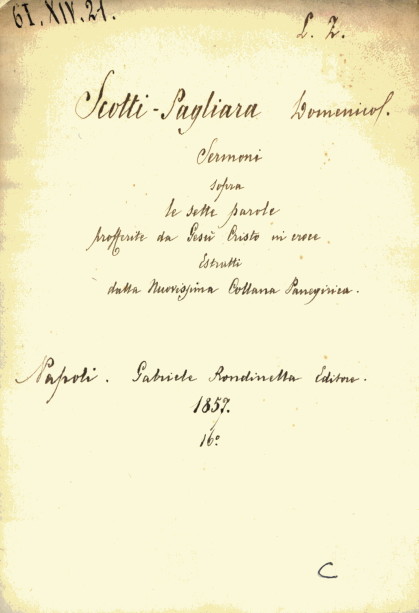 61. XIV. 21.
L. Z.
Scotti-Pagliara Domenico
Sermoni
sopra
le sette parole
profferite da Gesù Cristo in croce
Estratti
dalla Nuovissima Collana Panegirica.
Napoli. Gabriele Rondinella Editore.
1857.
16°
C